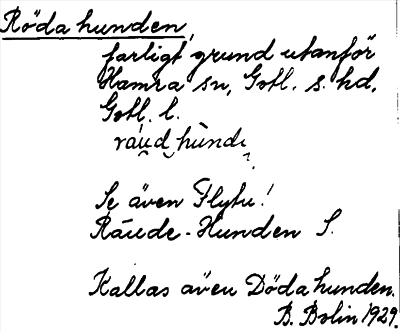 Röda hunden,
farligt grund utanför
Hamra sn, Gotl. s. hd,
Gotl. l.
ráu̯d hùndı̣
Se även Flytu!
Ráude-Hunden S.
Kallas även Döda hunden.
B. Bolin 1929.